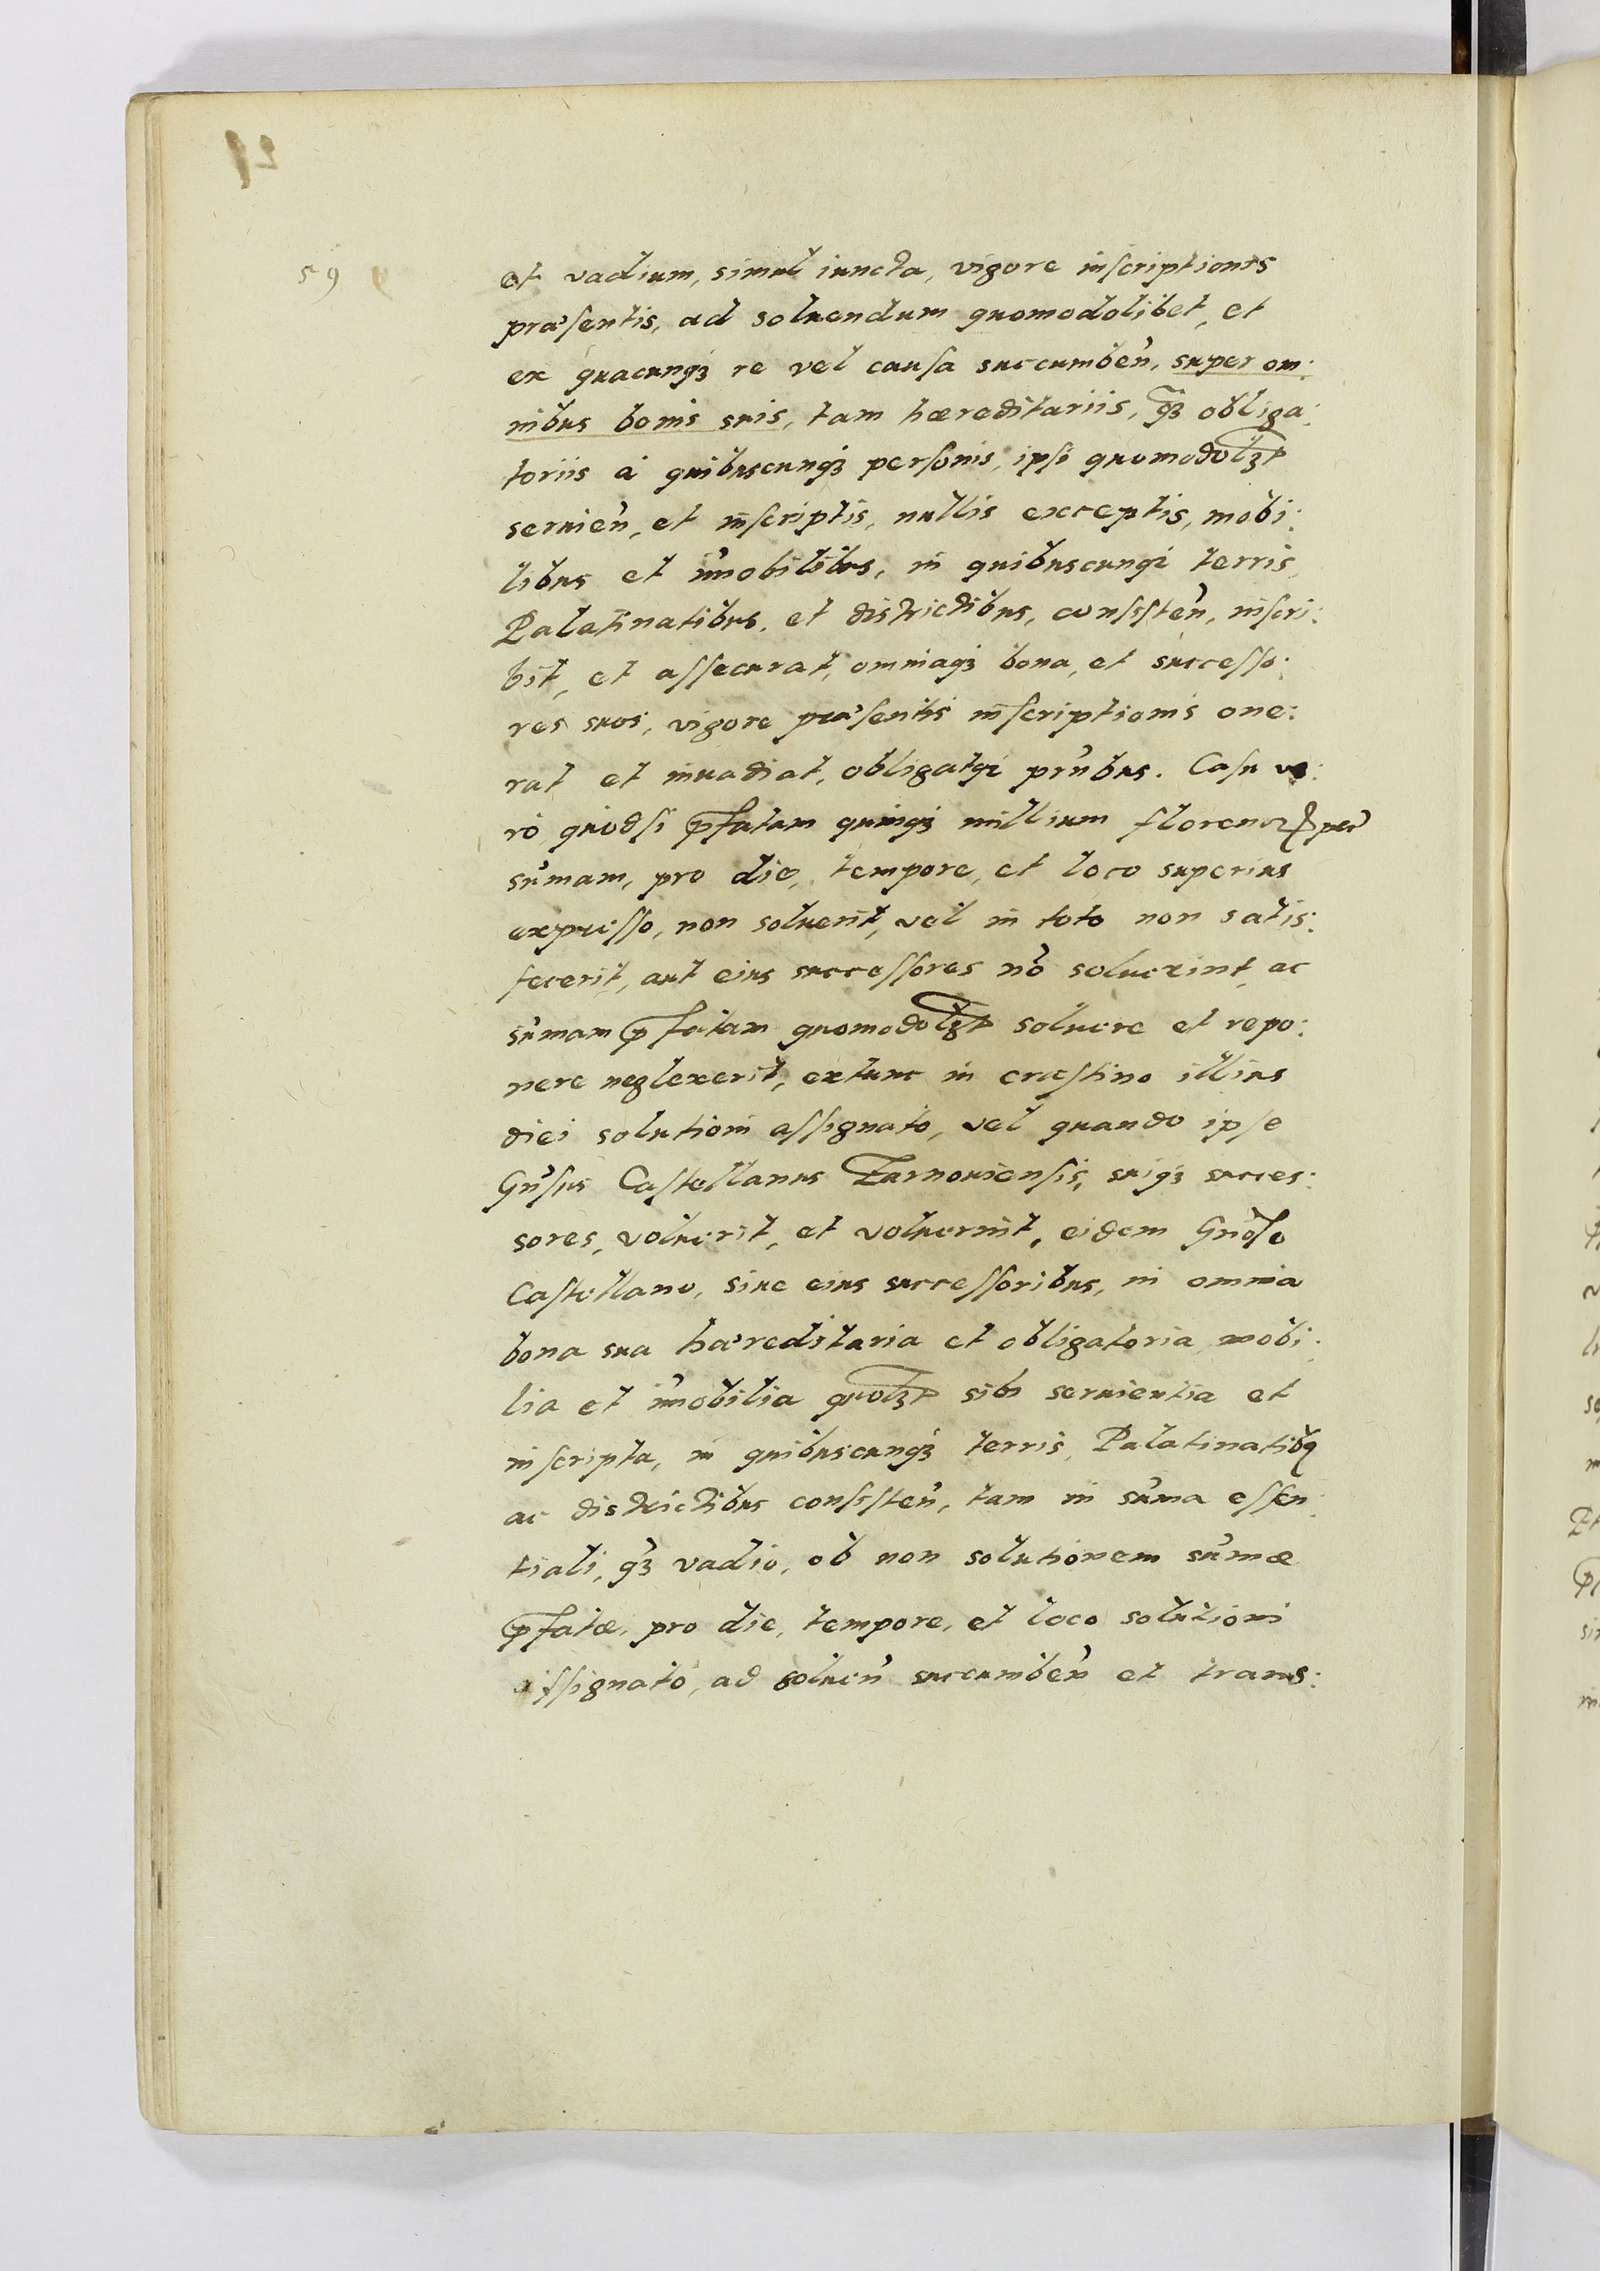 59
et vadium, simul iuncta, vigore inscriptionis
præsentis, ad soluendum quomodolibet, et
ex quacunqꝫ re vel causa succumbeñ, super om:
nibus bonis suis, tam hæreditariis, q̃ꝫ obliga:
toriis à quibuscunqꝫ personis, ipsi quomodolꝫt
seruieñ, et inscriptis, nullis exceptis, mobi:
libus et im̃obilibus, in quibuscunqꝫ terris,
Palatinatibus, et districtibus, consisteñ, inscri:
bit, et assecurat, omniaqꝫ bona, et successo:
res suos, vigore præsentis inscriptionis one:
rat et inuadiat, obligatqꝫ pr̃ñbus. Casu ve:
rò quodsi p̃fatam quinqꝫ millium florenoꝝ per
sum̃am, pro die, tempore, et loco superius
expresso, non soluerit, vel in toto non satis:
fecerit, aut eius successores nõ soluerint, ac
sum̃am p̃fatam quomodolꝫt soluere et repo:
nere neglexerit, extunc in crastino illius
diei solutioni assignato, vel quando ipse
Gñsus Castellanus Zarnouiensis, suiqꝫ succes:
sores, voluerit, et voluerint, eidem Gñoso
Castellano, siue eius successoribus, in omnia
bona sua hæreditaria et obligatoria mobi:
lia et im̃obilia quolꝫt sibi seruientia et
inscripta, in quibuscunqꝫ terris, Palatinatibꝰ
ac districtibus consisteñ, tam in sum̃a essen:
tiali, q̃ꝫ vadio, ob non solutionem sum̃æ
p̃fatæ, pro die, tempore, et loco solutioni
assignato, ad solueñ succumbeñ et trans: